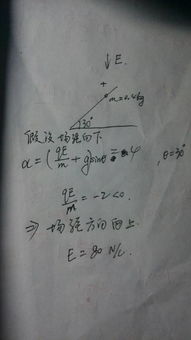 ↓E.
+
m=0.4kg
30°
假设场强向下
a=(qE/m+g)sinθ=4 , θ=30°
qE/m=-2<0.
⇒ 场强方向向上.
E=80 N/C.